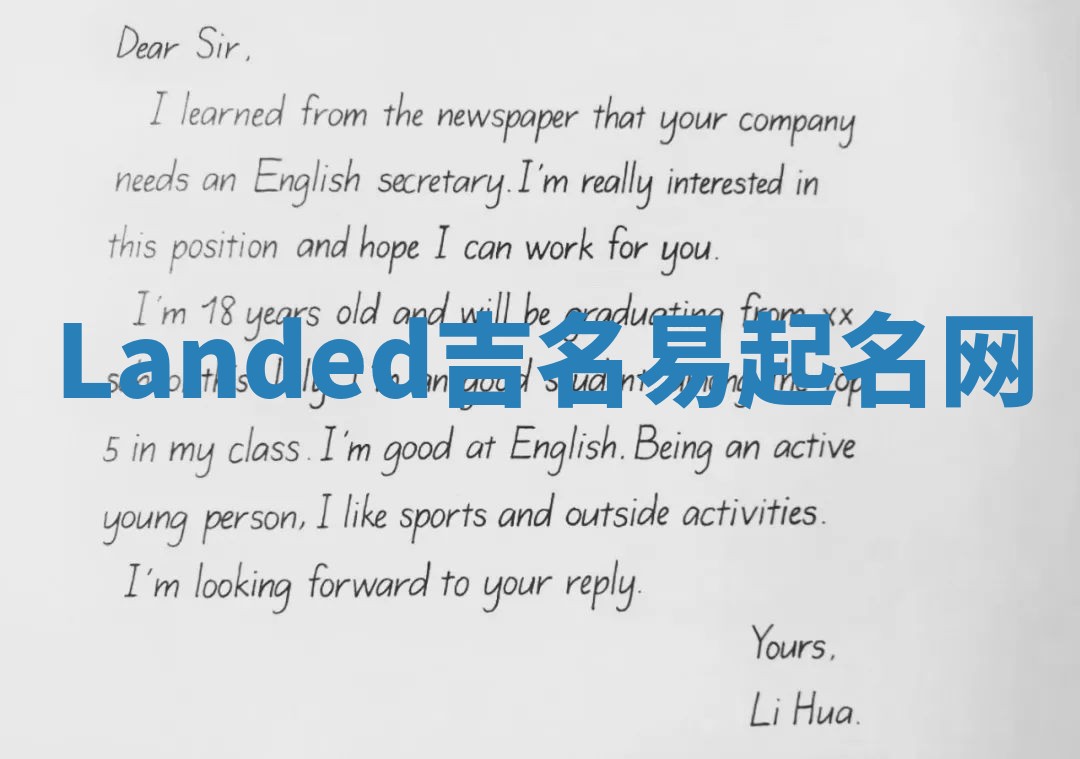 Dear Sir,
I learned from the newspaper that your company
needs an English secretary. I'm really interested in
this position and hope I can work for you.
I'm 18 years old and will be graduating from xx
Landed吉名易起名网
5 in my class. I'm good at English. Being an active
young person, I like sports and outside activities.
I'm looking forward to your reply.
Yours,
Li Hua.